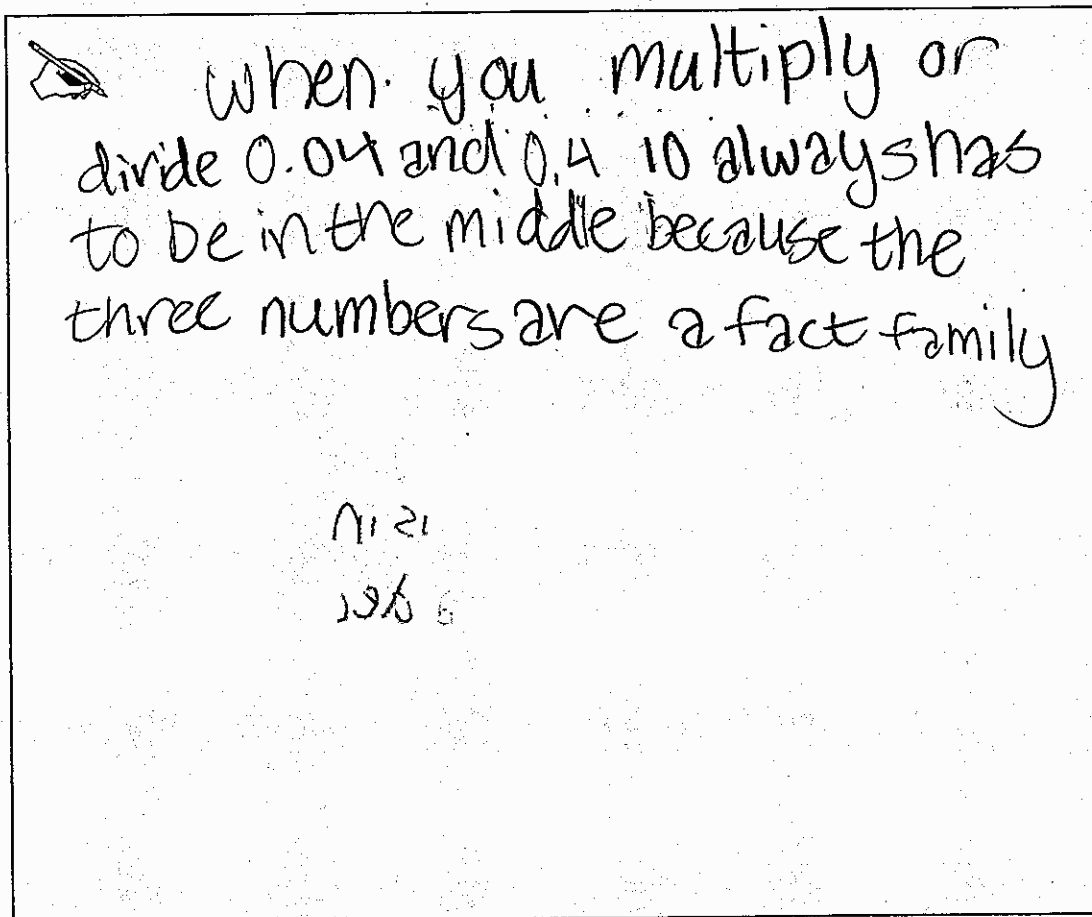 when you multiply or
divide 0.04 and 0.4 10 always has
to be in the middle because the
three numbers are a fact family